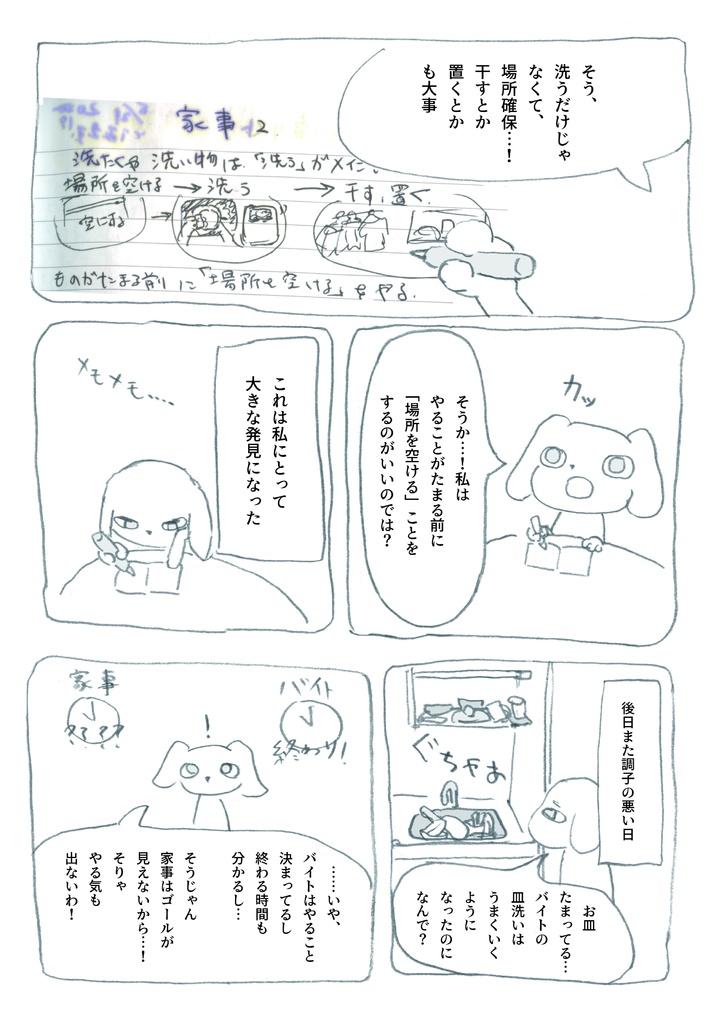 そう、
洗うだけじゃ
なくて、
場所確保…！
干すとか
置くとか
も大事
家事
洗たくや洗い物は「洗う」がメイン。
場所を空ける→洗う→干す、置く
空にする
ものがたまる前に「場所を空ける」をやる
カッ
そうか…！私は
やることがたまる前に
「場所を空ける」ことを
するのがいいのでは？
これは私にとって
大きな発見になった
メモメモ….
後日また調子の悪い日
ぐちゃあ
お皿
たまってる…
バイトの
皿洗いは
うまくいく
ように
なったのに
なんで？
バイト
終わり！
家事
???
！
……いや、
バイトはやること
決まってるし
終わる時間も
分かるし…
そうじゃん
家事はゴールが
見えないから…！
そりゃ
やる気も
出ないわ！